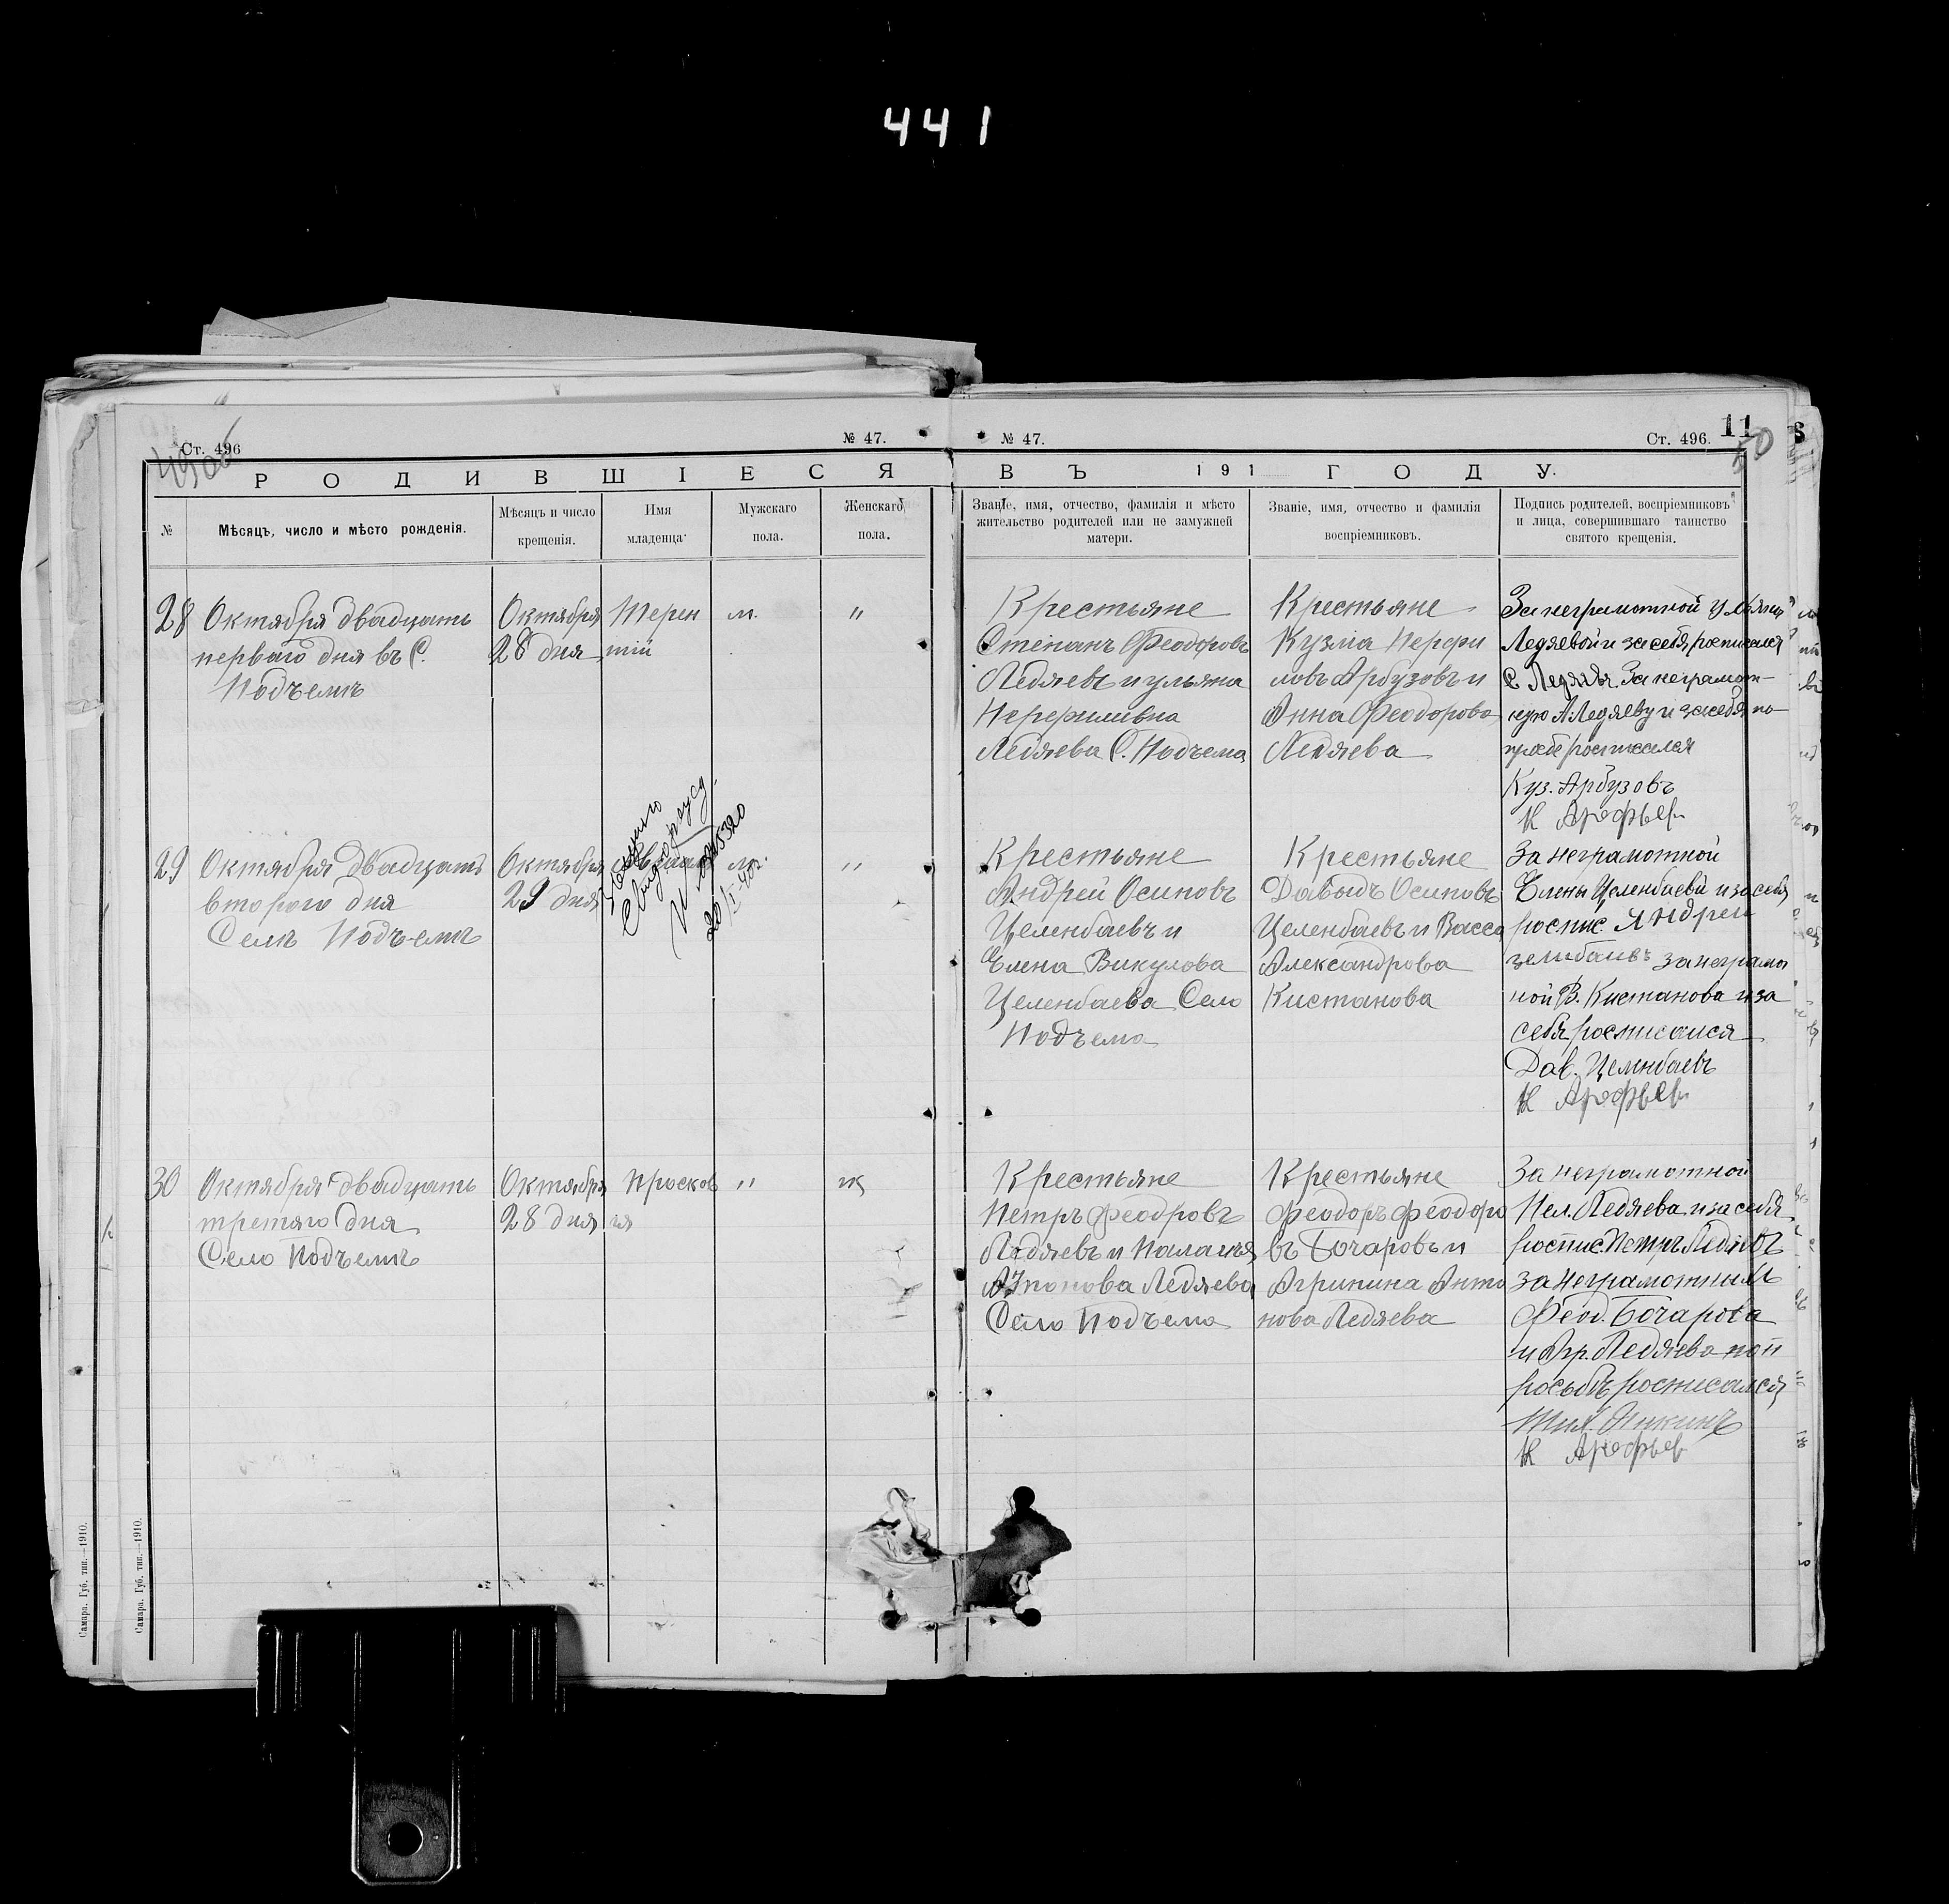 441
Ст. 496
№ 47.
№ 47.
Ст. 496.
11
50
РОДИВШІЕСЯ
ВЪ 191 ГОДУ.
№
Мѣсяцъ, число и мѣсто рожденія.
Мѣсяцъ и число
крещенія.
Имя
младенца.
Мужскаго
пола.
Женскаго
пола.
Званіе, имя, отчество, фамилія и мѣсто
жительство родителей или не замужней
матери.
Званіе, имя, отчество и фамилія
воспріемниковъ.
Подпись родителей, воспріемниковъ
и лица, совершившаго таинство
святого крещенія.
28
Октября двадцать
перваго дня въ С.
Подъемъ
Октября
28 дня
Терен
тій
м.
"
Крестьяне
Степанъ Феодоровъ
Ледяевъ и ульяна
Перфиливна
Ледяева С. Подъема
Крестьяне
Кузма Перфи
ловъ Арбузовъ и
Анна Феодорова
Ледяева
За неграмотной
Ледяевой и за себя росписался
С Ледяевъ. За неграмот-
ную А Ледяеву и за себя по-
росписался
Куз. Арбузовъ
К Арефьев
29
Октября двадцать
второго дня
Селъ Подъемъ
Октября
29 дня
м.
"
Крестьяне
Андрей Осиповъ
Целенбаевъ и
Елена Викулова
Целенбаева Село
Подъема
Крестьяне
Давыдъ Осиповъ
Целенбаевъ и Васса
Александрова
Кистанова
За неграмотной
Елены Целенбаевй и за себя
роспис. Андреи
за неграмо
ной В. Кистанова и за
себя росписался
Дав. Целнбаевъ
К Арефьев
30
Октября двадцать
третяго дня
Село Подъемъ
Октября
28 дня
Просков
ія
"
ж
Крестьяне
Петръ Феодровъ
Ледяевъ и Палагья
Ледяева
Село Подъема
Крестьяне
Феодоръ Феодоро
въ Бочаровъ и
Агрипина Анто
нова Ледяева
За неграмотной
Пел. Ледяева и за себя
роспис. Петръ Ледяевъ
за неграмотных
Феод. Бочарова
и Агр. Ледяева по п
росьбѣ росписался
К Арефьев
Самара. Губ. тип.—1910.
Самара. Губ. тип.—1910.